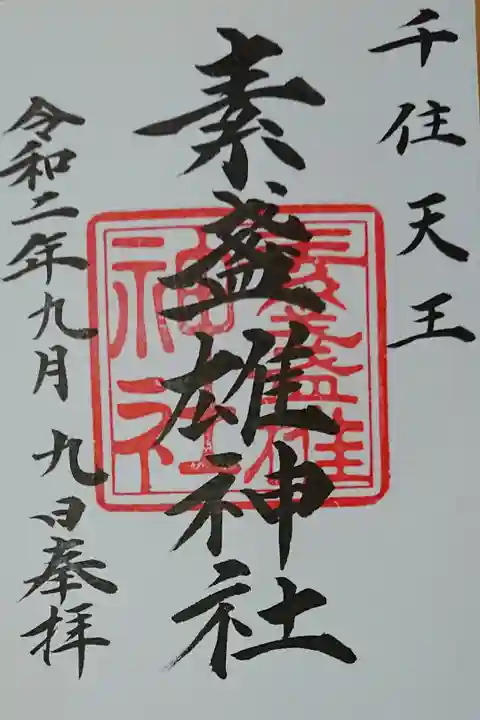 千住天王
素盞雄神社
令和二年九月九日奉拝
素盞雄
神社